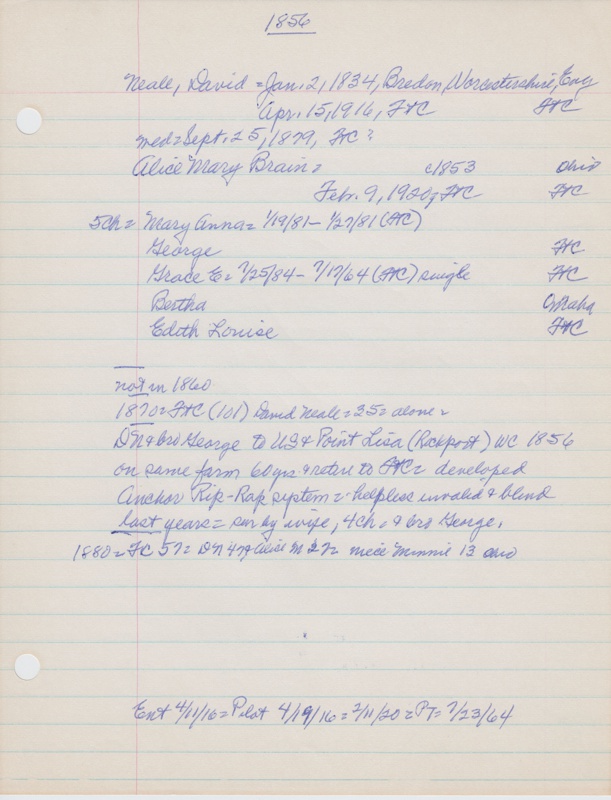 1856
Neale, David = Jan. 2, 1834, Bredon, Worcestershire, Eng
Apr. 15, 1916, FtC FtC
med = Sept. 25, 1879, FtC?
Alice Mary Brain = c1853 Ohio
Feb. 9, 1920, FtC FtC
5ch = Mary Anna = 1/19/81 – 1/27/81 (FtC)
George FtC
Grace E = 7/25/84 – 7/17/64 (FtC) single FtC
Bertha Omaha
Edith Louise FtC
not in 1860
1870 = FtC (101) David Neale = 35 = alone =
DN & bro George to US & Point Lisa (Rckport) WC 1856
on same farm 60 yrs & retire to FtC = developed
Anchor Rip-Rap system = helpless invalid & blind
last years = sur by wife, 4 ch, & bro George.
1880 = FC 57 = DN 47 Alice M 27 = niece Minnie 13 Ohio
Ent 4/11/16 = Pilot 4/19/16 = 2/11/20 = PT = 7/23/64